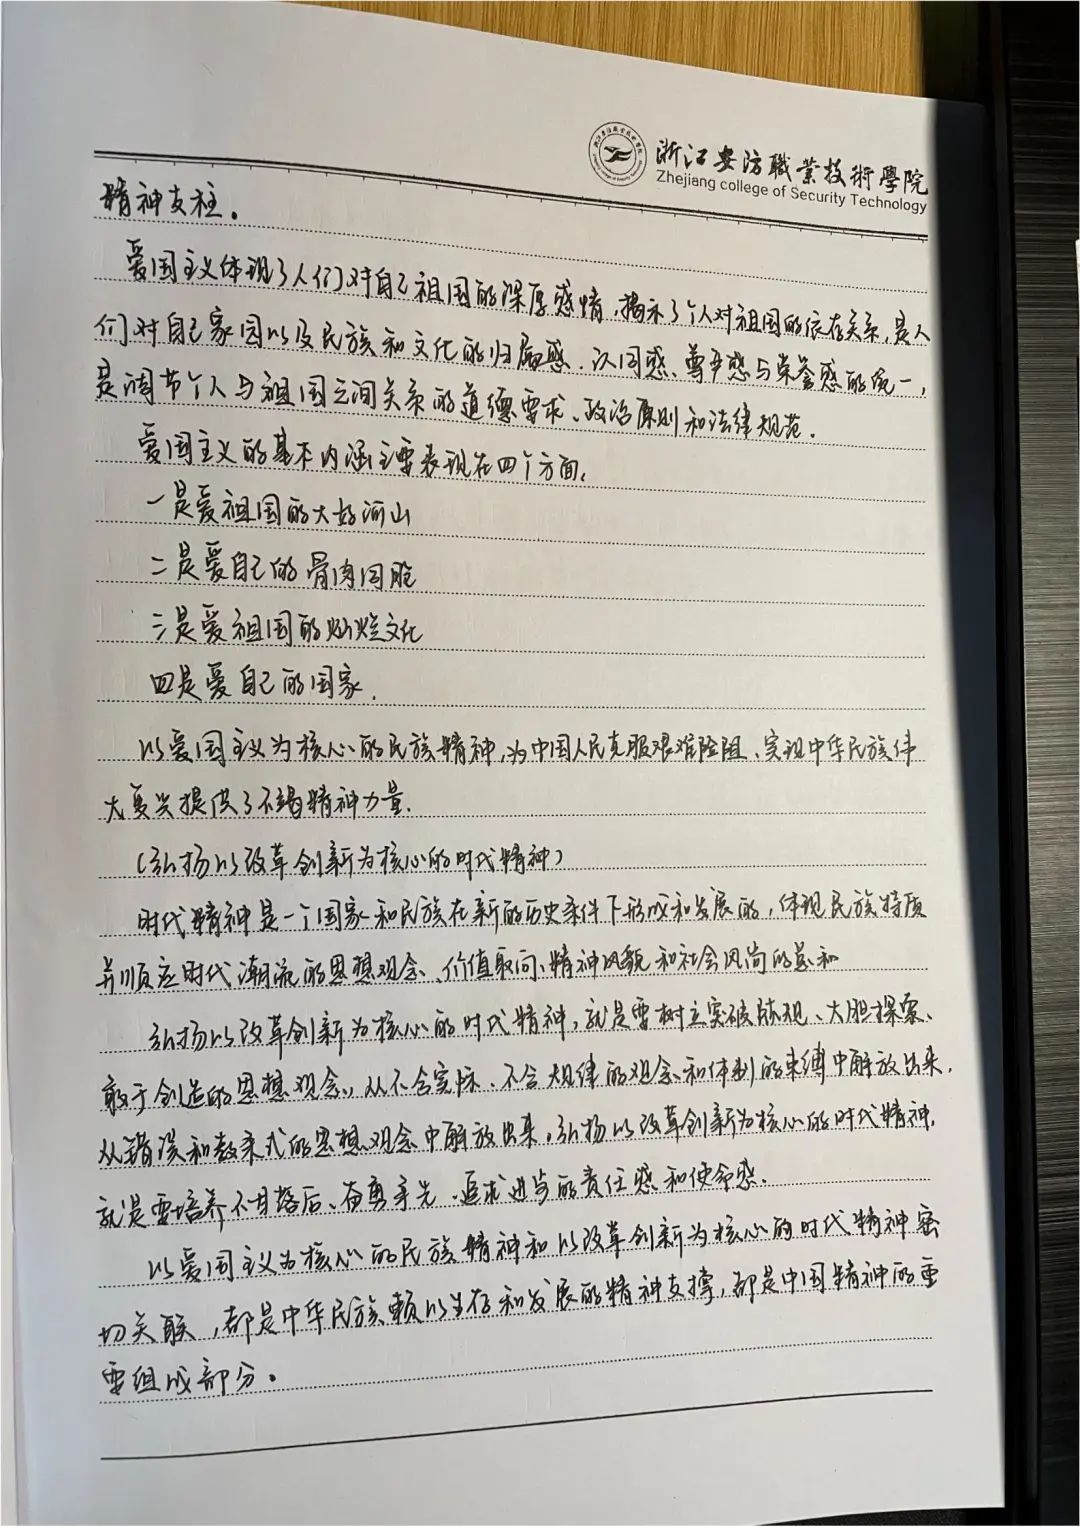 浙江安防職業技術學院
Zhejiang college of Security Technology
精神支柱。
爱国主义体现了人们对自己祖国的深厚感情,揭示了个人对祖国的依存关系,是人
们对自己家园以及民族和文化的归属感、认同感、尊严感与荣誉感的统一,
是调节个人与祖国之间关系的道德要求、政治原则和法律规范.
爱国主义的基本内涵主要表现在四个方面:
一是爱祖国的大好河山
二是爱自己的骨肉同胞
三是爱祖国的灿烂文化
四是爱自己的国家.
以爱国主义为核心的民族精神,为中国人民克服艰难险阻、实现中华民族伟
大复兴提供了不竭精神力量.
(弘扬以改革创新为核心的时代精神)
时代精神是一个国家和民族在新的历史条件下形成和发展的,体现民族特质
并顺应时代潮流的思想观念、价值取向、精神风貌和社会风尚的总和
弘扬以改革创新为核心的时代精神,就是要树立突破陈规、大胆探索、
敢于创造的思想观念,从不合实际、不合规律的观念和体制的束缚中解放出来.
从错误和教条式的思想观念中解放出来,弘扬以改革创新为核心的时代精神,
就是要培养不甘落后、奋勇争先、追求进步的责任感和使命感.
以爱国主义为核心的民族精神和以改革创新为核心的时代精神密
切关联,都是中华民族赖以生存和发展的精神支撑,都是中国精神的重
要组成部分。